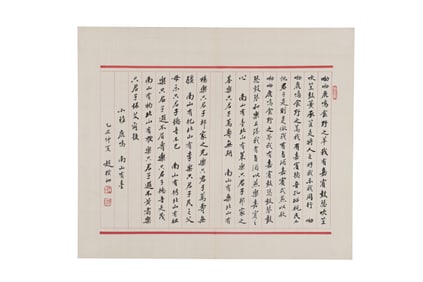 呦呦鹿鳴食野之苹我有嘉賓鼓瑟吹笙
吹笙鼓簧承筐是將人之好我示我周行 呦
呦鹿鳴食野之蒿我有嘉賓德音孔昭視民不
恌君子是則是傚我有旨酒嘉賓式燕以敖
呦呦鹿鳴食野之芩我有嘉賓鼓瑟鼓琴鼓
瑟鼓琴和樂且湛我有旨酒以燕樂嘉賓之
心 南山有臺北山有萊樂只君子邦家之
基樂只君子萬壽無期 南山有桑北山有
楊樂只君子邦家之光樂只君子萬壽無
疆 南山有杞北山有李樂只君子民之父
母樂只君子德音不已 南山有栲北山有杻
樂只君子遐不眉壽樂只君子德音是茂
南山有枸北山有楰樂只君子遐不黃耇樂
只君子保艾爾後
小雅 鹿鳴 南山有臺
乙丑仲夏 趙